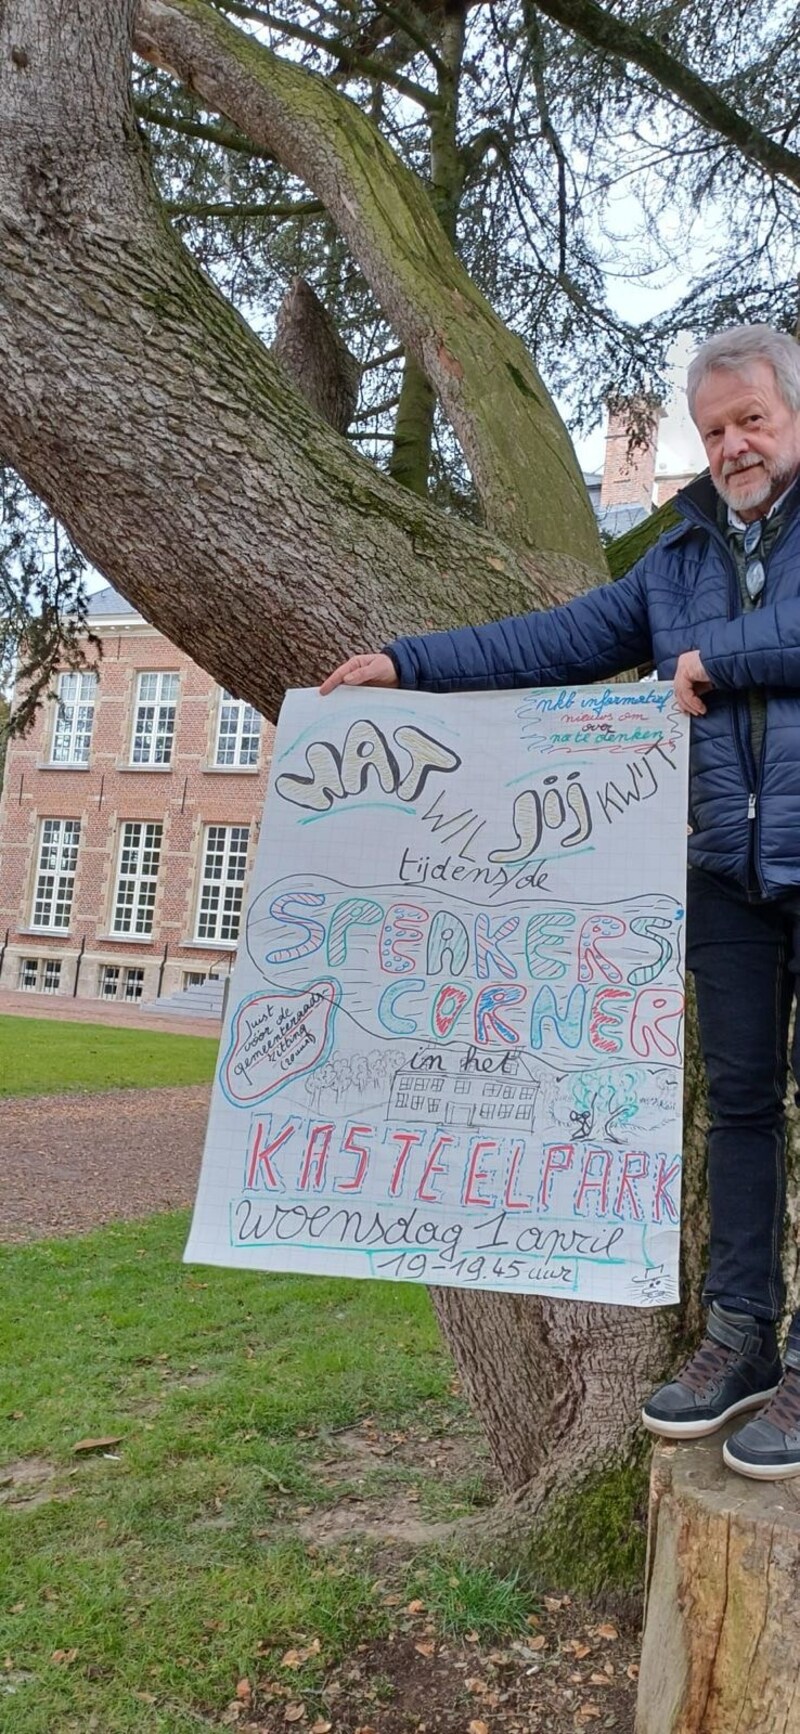 nkb informatief
nieuws om
over
na te denken
WAT
WIL JIJ KWIJT
tijdens de
SPEAKERS'
CORNER
Juist
vóór de
gemeenteraads
zitting
in het
KASTEELPARK
woensdag 1 april
19-19.45 uur